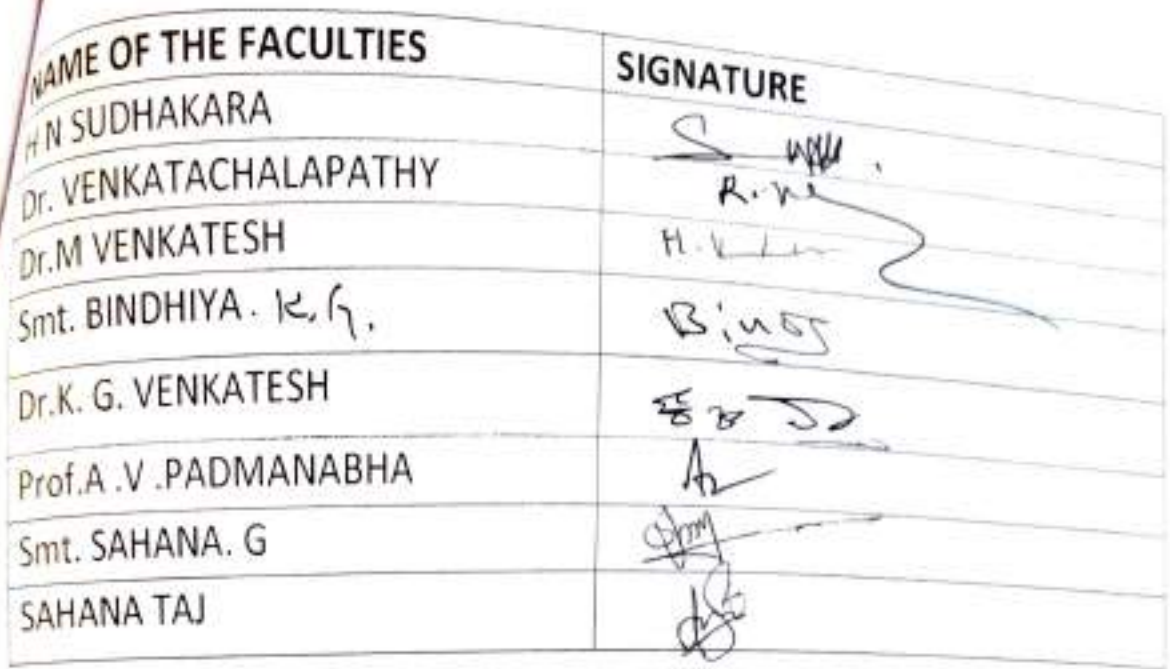 NAME OF THE FACULTIES SIGNATURE
H N SUDHAKARA
Dr. VENKATACHALAPATHY
Dr.M VENKATESH
Smt. BINDHIYA. K.G.
Dr.K. G. VENKATESH
Prof.A .V .PADMANABHA
Smt. SAHANA. G
SAHANA TAJ